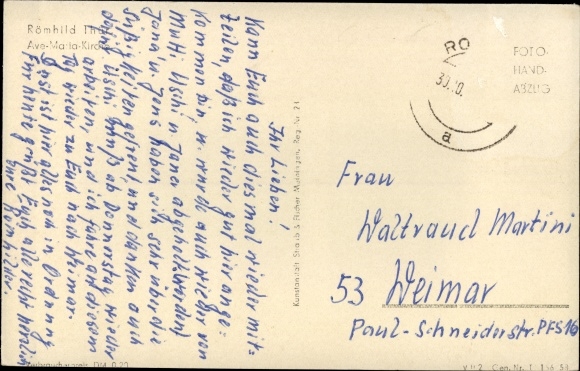 Römhild Thür.
Ave-Maria-Kirche
Ihr Lieben!
Kann Euch auch diesmal wieder mit=
teilen, daß ich wieder gut hier ange=
kommen bin u. wurde auch wieder von
Mutti Uschi u Jana abgeholt worden
Jana u. Jens haben sich sehr über die
Süßigkeiten gefreut, und danken auch
dafür. Uschi muß ab Donnerstag wieder
arbeiten, und ich fahre ab diesem
Tag wieder zu Euch nach Weimar.
Sonst ist hier alles noch in Ordnung
Für heute grüßt Euch alle recht herzlich
Eure
Kunstanstalt Straub & Fischer Meiningen, Reg. Nr. 21
RO
30.10.
a
FOTO-
HAND-
ABZUG
Frau
Waltraud Martini
53 Weimar
Paul-Schneiderstr. PFS 16
Verbraucherpreis DM 0.20
V 11 2 Gen. Nr.